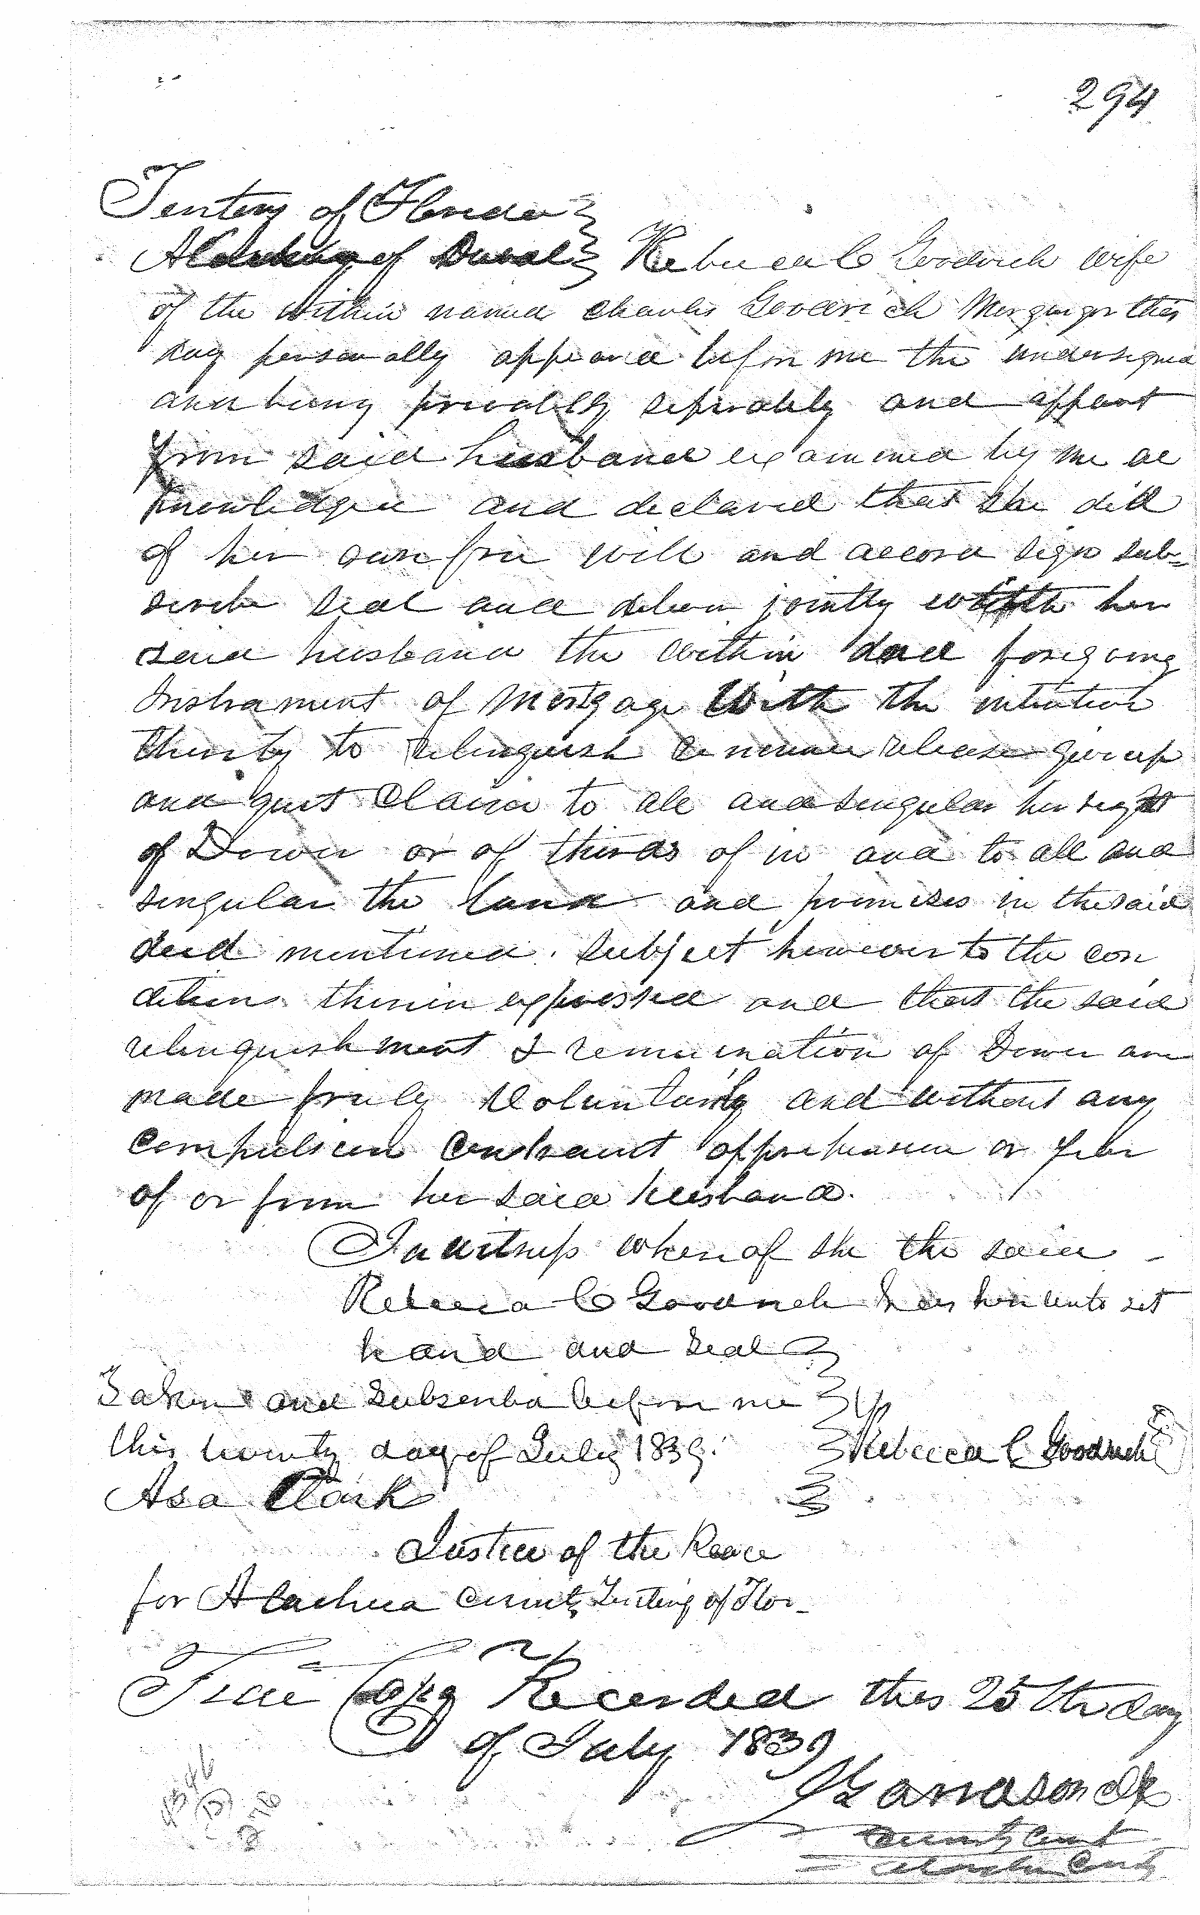 294
Territory of Florida
of Duval Rebecca C Goodrich wife
of the within named Charles Goodrich Mortgagor this
day personally appeared before me the undersigned
and being privately seperately and appart
from said husband examined by me ac
knowledged and declared that she did
of her own free will and accord sign sub=
scribe seal and deliver jointly with her
said husband the within and foregoing
Instrument of Mortgage With the intention
thereby to relinquish renounce release give up
and quit Claim to all and singular her right
of Dower or of thirds of in and to all and
singular the land and premises in the said
deed mentioned. Subject however to the con
ditions therein expressed and that the said
relinquishment & renunciation of Dower are
made freely Voluntarily and without any
Compulsion Constraint apprehension or fear
of or from her said husband.
In witness whereof she the said
Rebecca C Goodrich has hereunto set
hand and seal
Taken and subscribed before me
this twenty day of July 1839.
Rebecca C Goodrich
Asa Clark
Justice of the Peace
for Alachua County Territory of Flor-
True Copy Recorded this 25th day
of July 1839
Clk
County Court
County